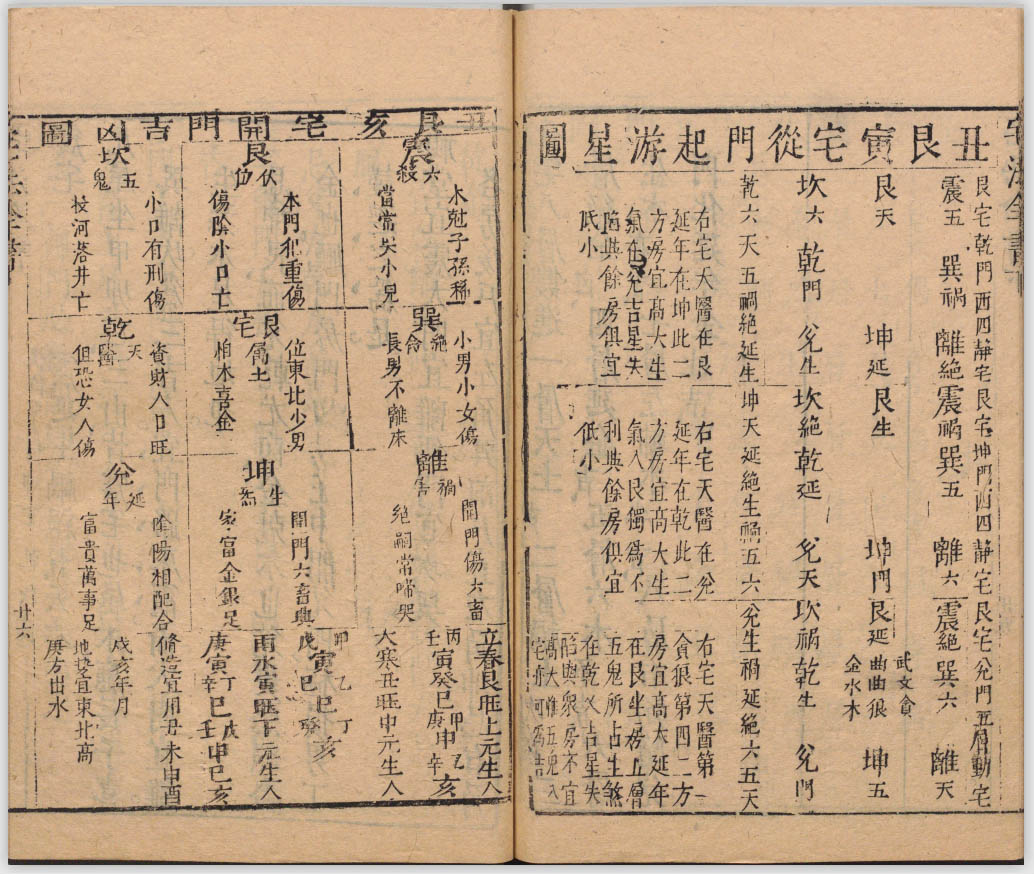 丑艮寅宅從門起游星圖
艮宅乾門西四靜宅
震五 巽禍 離絕
艮天 坤延
坎六 乾門 兌生
乾六天五禍絕延生
右宅天醫在艮
延年在坤此二
方房宜高大生
氣在兌吉星失
與餘房俱宜
低小
艮宅坤門西四靜宅
震禍 巽五 離六
艮生 坤門
坎絕 乾延 兌天
坤天延絕生禍五六
右宅天醫在兌
延年在乾此二
方房宜高大生
氣入艮獨爲不
利與餘房俱宜
低小
艮宅兌門五層動宅
震絕 巽六 離天
武文貪
艮延 曲曲狼 坤五
金水木
坎禍 乾生 兌門
兌生禍延絕六五天
右宅天醫第一
貪狼第四二方
房宜高大延年
在艮坐房五層
五鬼所占生煞
在乾又吉星失
陷與衆房不宜
高大
丑艮亥宅開門吉凶圖
震 六煞
木尅子孫稀
當常失小兒
艮 伏位
本門犯重傷
傷陰小口亡
坎 五鬼
小口有刑傷
投河落井亡
巽 絕命
小男小女傷
長男不離床
艮宅
位東北少男
屬土
相木喜金
乾 天醫
資財人口旺
但恐女人傷
離 禍害
開門傷六畜
絕嗣常啼哭
坤 生氣
開門六畜興
家富金銀足
兌 延年
陰陽相配合
富貴萬事足
立春艮旺上元生人
丙寅癸巳甲申乙亥
壬 庚 辛
大寒丑旺中元生人
卯 乙 丁
戊寅巳癸亥
雨水寅旺下元生人
庚寅丁巳戊申巳亥
辛 壬
修造宜用丑未申酉
戌亥年月
地基宜東北高
庚方出水
廿六